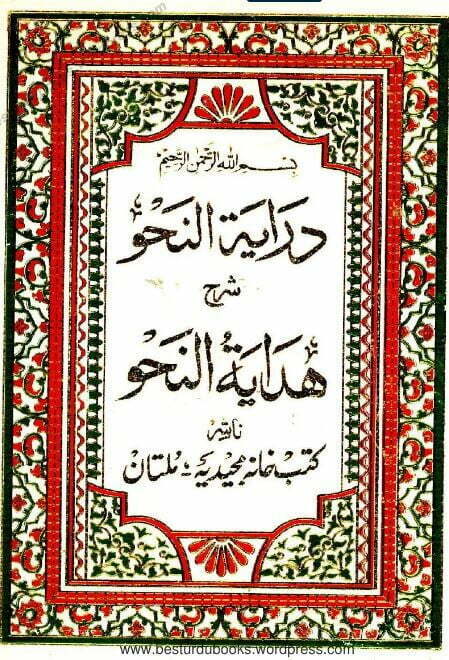 بسم الله الرحمن الرحیم
درایة النحو
شرح
هدایة النحو
ناشر
کتب خانه مجیدیه ؛ ملتان
www.besturdubooks.wordpress.com